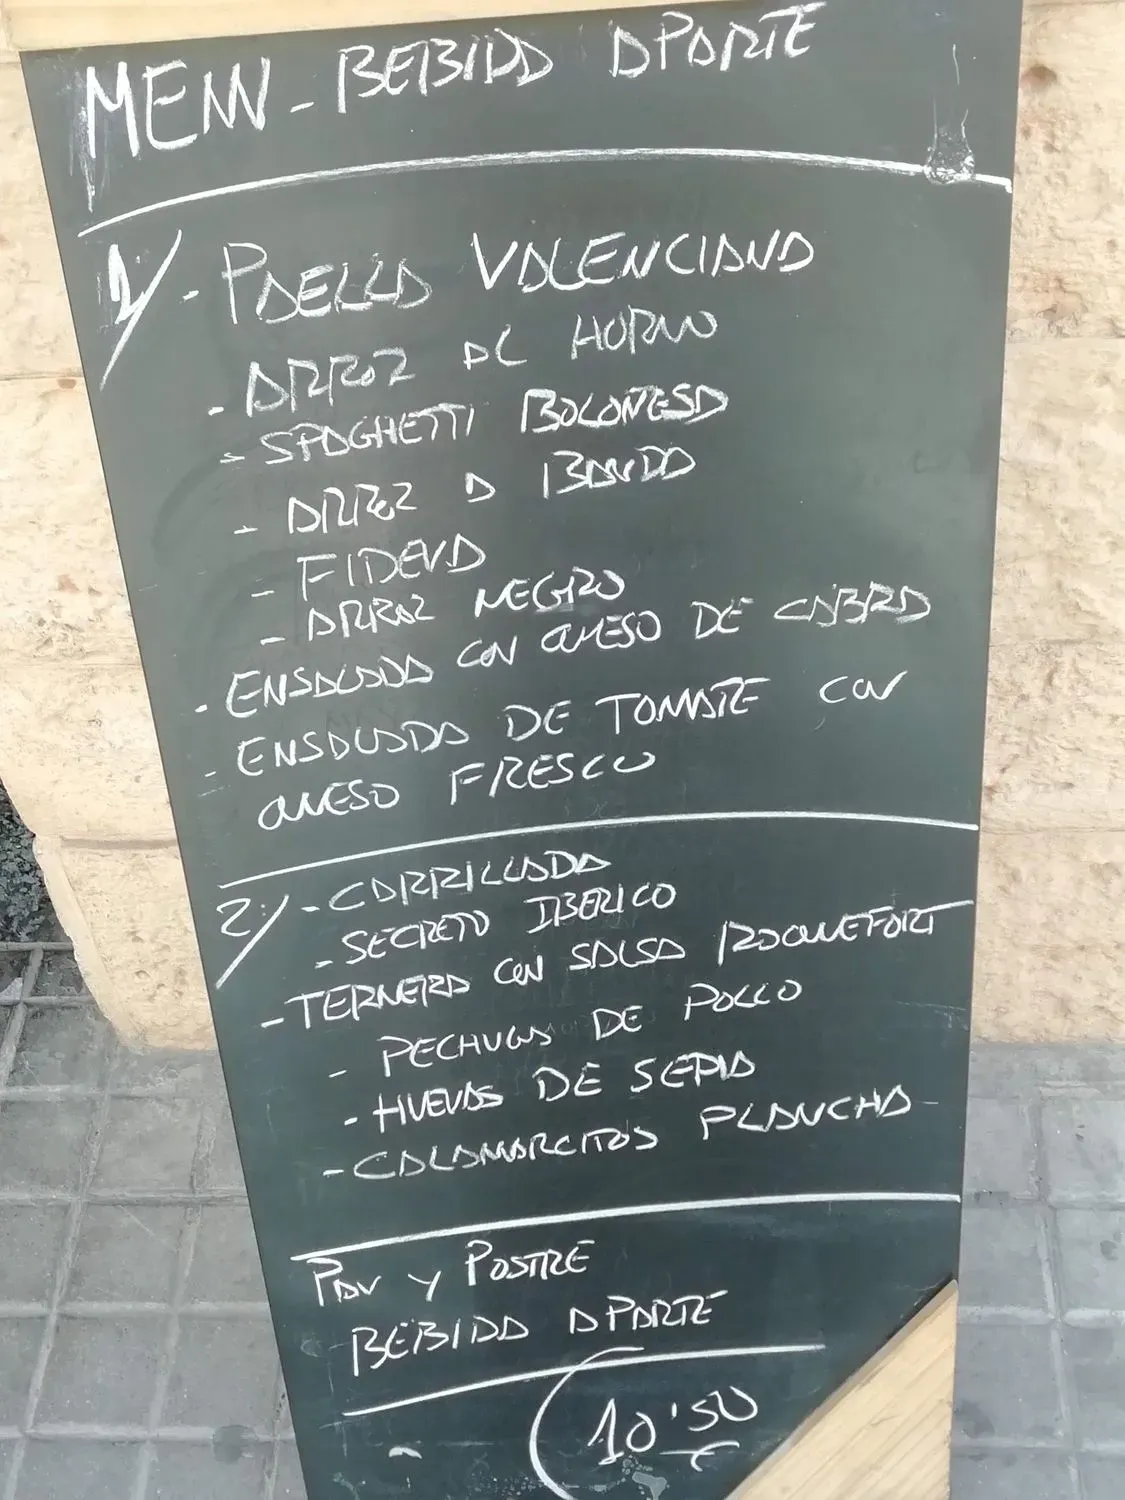 MENU - BEBIDA APARTE
1/ - PAELLA VALENCIANA
- ARROZ AL HORNO
- SPAGHETTI BOLOÑESA
- ARROZ A BANDA
- FIDEUA
- ARROZ NEGRO
- ENSALADA CON QUESO DE CABRA
- ENSALADA DE TOMATE CON
QUESO FRESCO
2/ - CARRILLADA
- SECRETO IBERICO
- TERNERA CON SALSA ROQUEFORT
- PECHUGAS DE POLLO
- HUEVAS DE SEPIA
- CALAMARCITOS PLANCHA
PAN Y POSTRE
BEBIDA APARTE
- 10'50